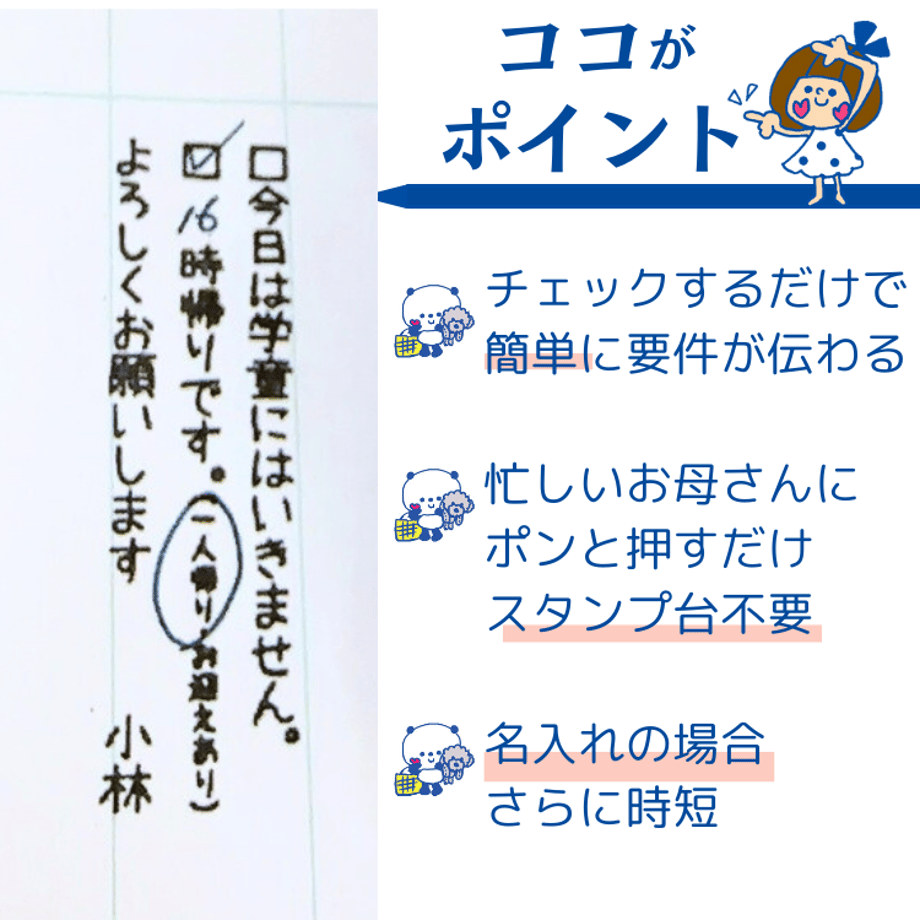 □今日は学童にはいきません。
☑16時帰りです。(一人帰り・お迎えあり)
よろしくお願いします 小林
ココが
ポイント
チェックするだけで
簡単に要件が伝わる
忙しいお母さんに
ポンと押すだけ
スタンプ台不要
名入れの場合
さらに時短